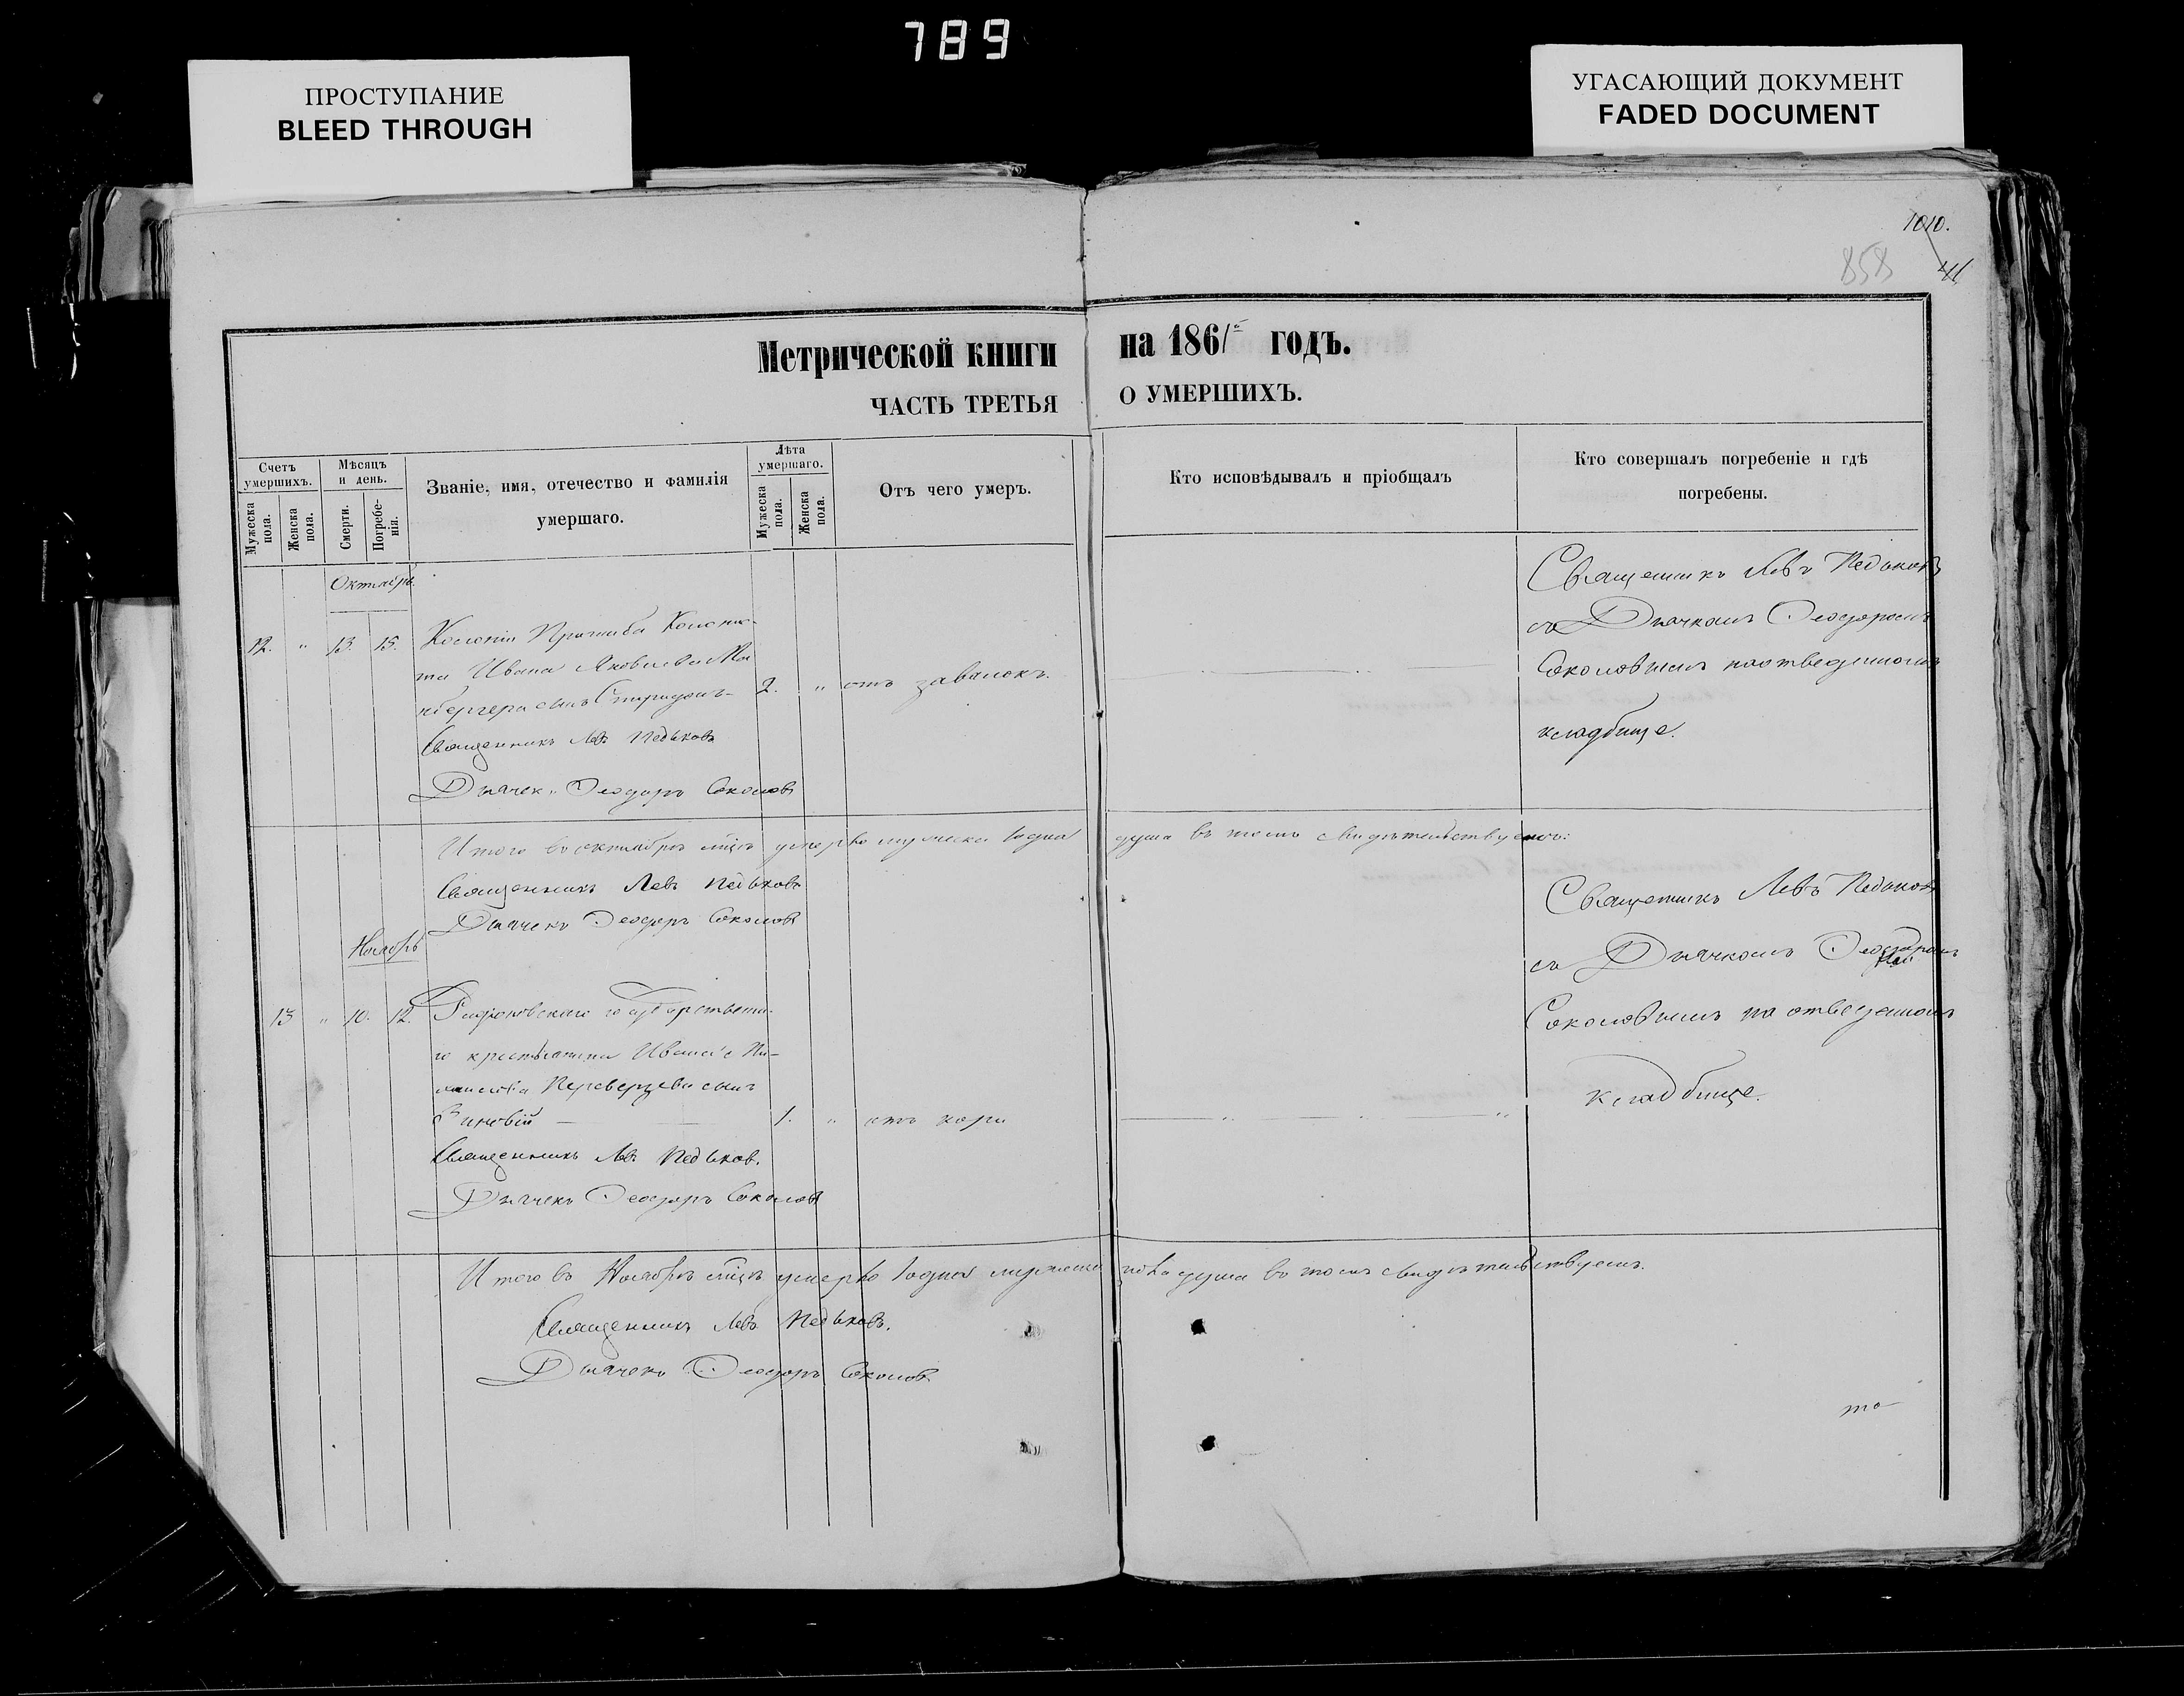 789
ПРОСТУПАНИЕ
BLEED THROUGH
УГАСАЮЩИЙ ДОКУМЕНТ
FADED DOCUMENT
1010.
858
41
Метрической книги на 1861 годъ.
ЧАСТЬ ТРЕТЬЯ О УМЕРШИХЪ.
Счетъ умершихъ.
Мужеска пола.
Женска пола.
Мѣсяцъ и день.
Смерти.
Погребенія.
Званіе, имя, отечество и фамилія
умершаго.
Лѣта умершаго.
Мужеска пола.
Женска пола.
Отъ чего умеръ.
Кто исповѣдывалъ и пріобщалъ
Кто совершалъ погребеніе и гдѣ
погребены.
Октябрь.
12. " 13. 15.
Колоніи Пришиба Колонис-
та Ивана Яковлева
сынъ Спиридонъ
2. " отъ завалокъ.
Священникъ Левъ Педьковъ
Дьячекъ Ѳеодоръ Соколовъ
Священникъ Левъ Педьковъ
съ Дьячкомъ Ѳеодоромъ
Соколовымъ на отведенномъ
кладбище.
Итого въ октябрѣ мѣцѣ умерло мужеска 1 одна душа въ томъ свидѣтельствуемъ:
Священникъ Левъ Педьковъ
Дьячекъ Ѳеодоръ Соколовъ
Ноябрь
13 " 10. 12.
крестьянина
Переверзева сынъ
Зиновій
1. " отъ кори
Священникъ Левъ Педьков.
Дьячекъ Ѳеодоръ Соколовъ
Священникъ Левъ Педьковъ
съ Дьячкомъ Ѳеодоромъ
Соколовымъ на отведенномъ
кладбище.
Итого въ Ноябрѣ мѣцѣ умерло 1 одна мужеска пола душа въ томъ свидѣтельствуемъ.
Священникъ Левъ Педьковъ.
Дьячекъ Ѳеодоръ Соколовъ
то